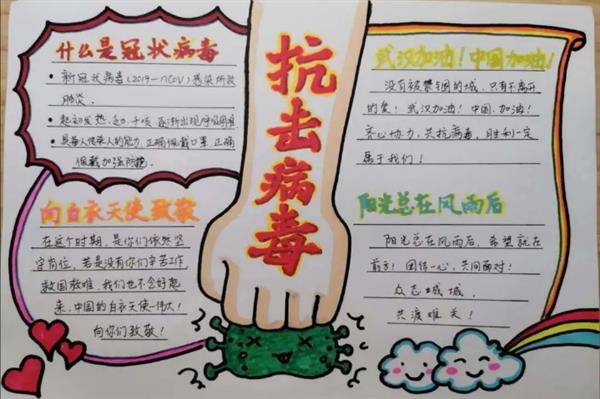 什么是冠状病毒
新冠状病毒(2019-nCoV)感染所致
肺炎。
起初发热、乏力、干咳、逐渐出现呼吸困难
具备人传染人的能力,正确佩戴口罩,正确
佩戴加强防护。
向白衣天使致敬
在这个时期,是你们依然坚
守岗位,若是没有你们辛苦工作
救国救难,我们也不会好起
来,中国的白衣天使—伟大!
向你们致敬!
抗击病毒
武汉加油!中国加油!
没有被禁锢的城,只有不离开
的爱!武汉加油!中国,加油!
齐心协力,共抗病毒,胜利一定
属于我们!
阳光总在风雨后
阳光总在风雨后,希望就在
前方!团结一心,共同面对!
众志成城,
共渡难关!